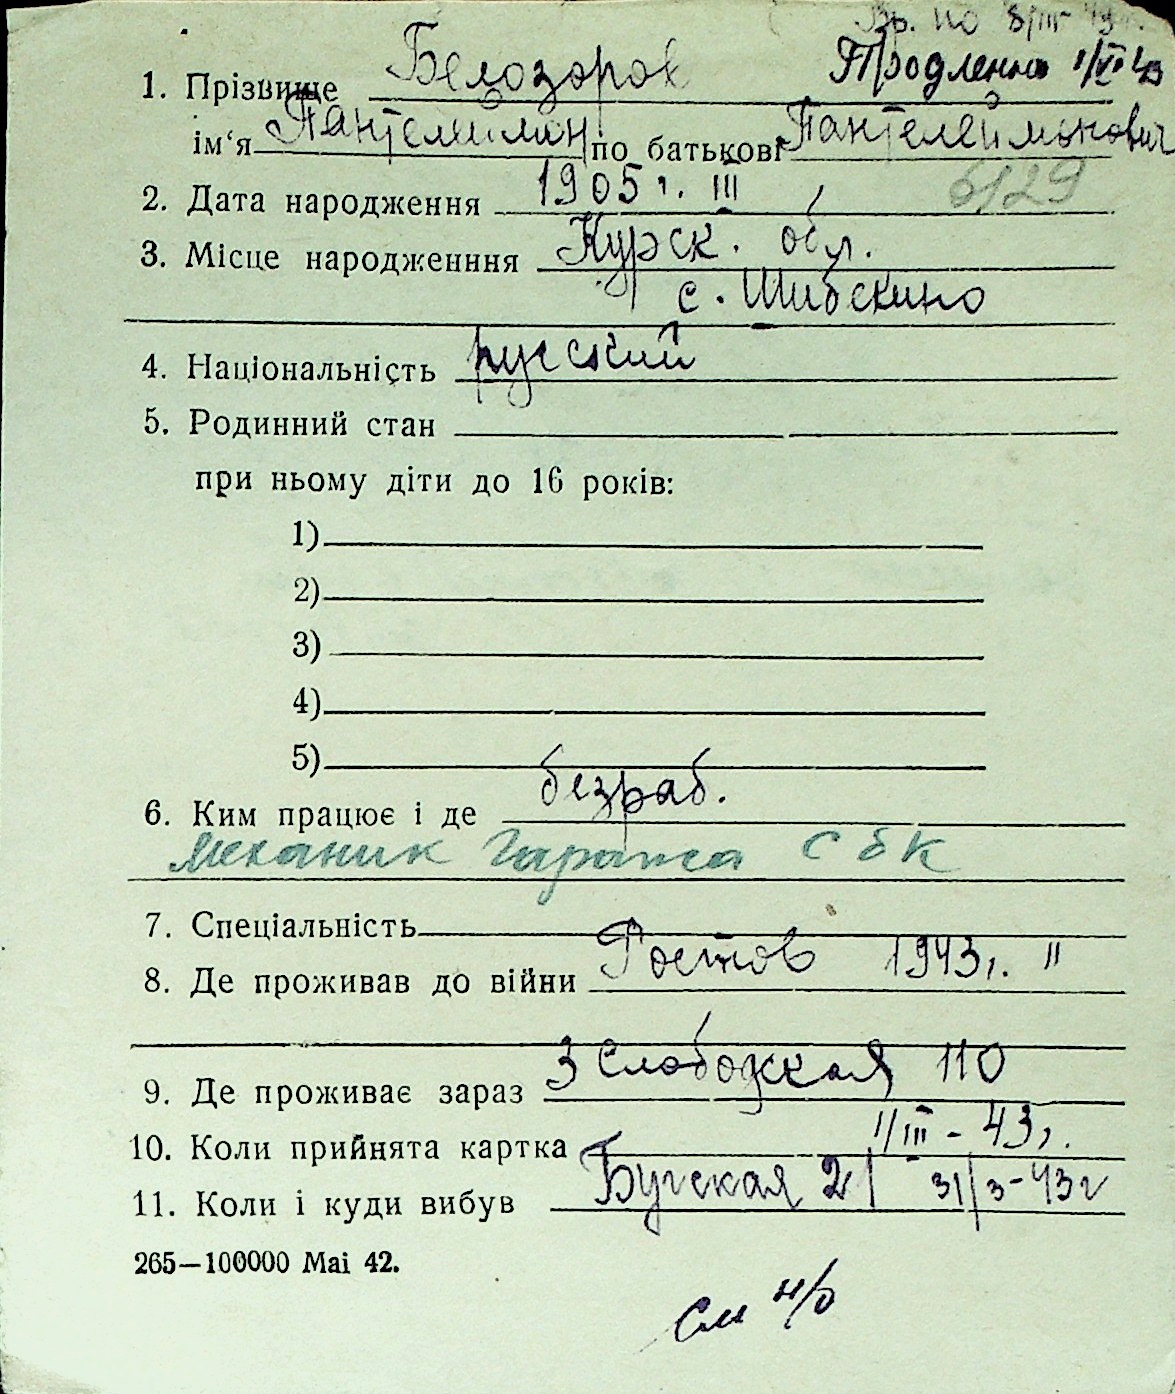 Вр. по 8/III 43 г.
1. Прізвище Белозоров Продленно 1/VI 43
ім‘я Пантелеймон по батькові Пантелеймонович
2. Дата народження 1905 г. III 6/29
3. Місце народженння Курск. обл.
с. Шибекино
4. Національність русский
5. Родинний стан
при ньому діти до 16 років:
1)
2)
3)
4)
5)
6. Ким працює і де безраб.
механик гаража СбК
7. Спеціальність
8. Де проживав до війни Ростов 1943 г. II
9. Де проживає зараз 3 Слободская 110
10. Коли прийнята картка 1/III - 43 г.
11. Коли і куди вибув Бугская 21 31/3-43 г
265—100000 Mai 42.
См н/о